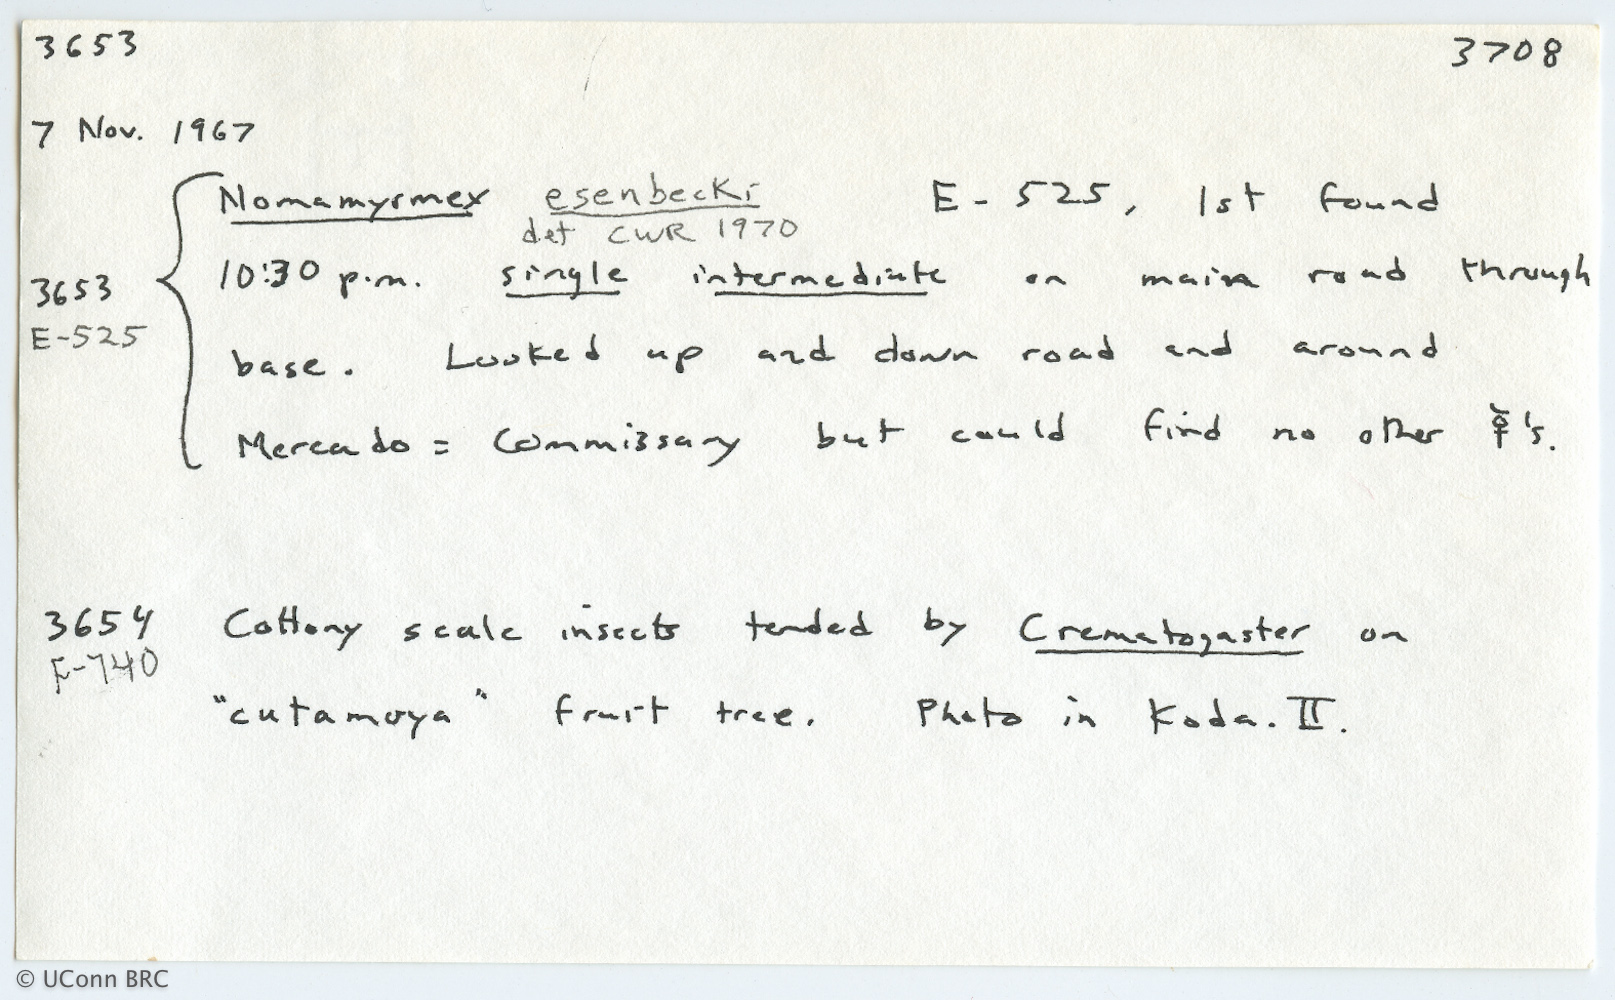 3653 3708
7 Nov. 1967
Nomamyrmex esenbecki E-525, 1st found
det CWR 1970
3653 10:30 p.m. single intermediate on main road through
E-525
base. Looked up and down road and around
Mercado = Commissary but could find no other ☿'s.
3654 Cottony scale insects tended by Crematogaster on
F-740
"cutamoya" fruit tree. Photo in Koda. II.
© UConn BRC